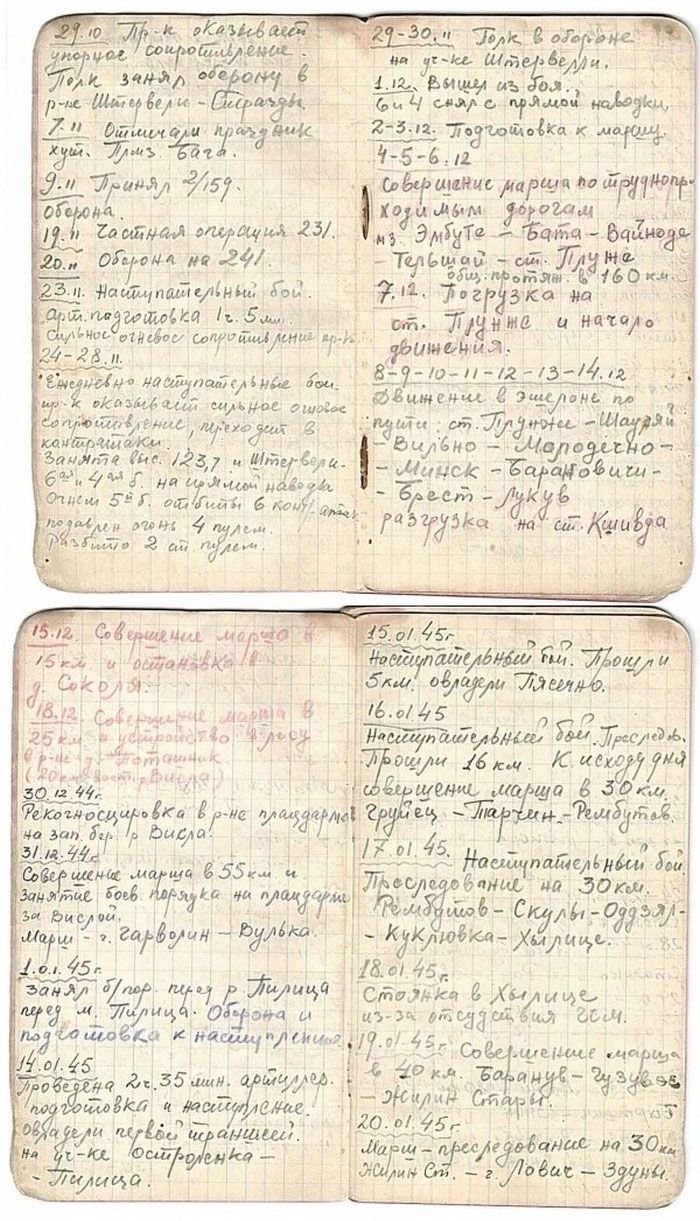 29.10 Пр-к оказывает
упорное сопротивление.
Полк занял оборону в
р-не Штервели - Страды
7.11 Отмечали праздник
хут. Плмз. Бача.
9.11 Принял 2/159.
оборона.
19.11 Частная операция 231.
20.11 Оборона на 241.
23.11. Наступательный бой.
арт. подготовка 1 ч. 5 мин.
Сильное огневое сопротивление пр-к
24-28.11.
Ежедневно наступательные бои.
пр-к оказывает сильное огневое
сопротивление, переходит в
контратаки.
Занята выс. 123,7 и Штервели.
6ая и 4ая б. на прямой наводке
Огнем 5й б. отбиты 6 контратак
подавлен огонь 4 пулем.
Разбито 2 ст. пулем.
29-30.11 Полк в обороне
на уч-ке Штервелли.
1.12. Вышел из боя.
6 и 4 снял с прямой наводки.
2-3.12. Подготовка к маршу.
4-5-6.12
Совершение марша по труднопр-
ходимым дорогам
мз. Эмбуте - Бата - Вайноде
- Тельшай - ст. Плунже
общ. протяж. в 160 км.
7.12. Погрузка на
ст. Плунже и начало
движения.
8-9-10-11-12-13-14.12
Движение в эшелоне по
пути: ст. Плунжи - Шауляй
- Вильно - Мородечно -
- Минск - Барановичи -
- Брест - Лукув
разгрузка на ст. Кшивда
15.12. Совершение марша в
15 км и остановка в
д. Соколя.
18.12. Совершение марша в
25 км и устройство в лесу
в р-не д. Поташник
(20 км. вост. р. Висла)
30.12.44г.
Рекогносцировка в р-не плацдарма
на зап. бер. р. Висла.
31.12.44г.
Совершение марша в 55 км и
занятие боев. порядка на плацдарме
за Вислой.
Марш - г. Гарволин - Вулька.
1.01.45г.
Занял б/пор. перед р. Пилица
перед м. Пилица. Оборона и
подготовка к наступлению
14.01.45
Проведена 2 ч. 35 мин. артиллер.
подготовка и наступление.
овладели первой траншеей.
на уч-ке Остроленка -
- Пилица.
15.01.45г
Наступательный бой. Прошли
5 км. овладели Пясечно.
16.01.45
Наступательный бой. Преследов.
Прошли 16 км. К исходу дня
совершение марша в 30 км.
Груйец - Тарчин - Рембутов.
17.01.45. Наступательный бой.
Преследование на 30 км.
Рембутов - Скулы - Оддзял -
- Куклювка - Хылице.
18.01.45г.
Стоянка в Хылице
из-за отсудствия ГСМ.
19.01.45г. Совершение марша
в 40 км. Баранув - Гузув
- Жилин Стары.
20.01.45г.
Марш - преследование на 30 км
Жилин Ст. - г. Лович - Здуны.